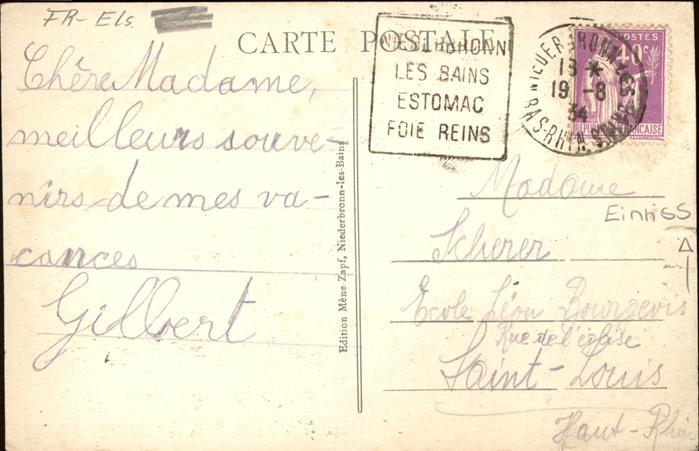 FR- Els.
CARTE POSTALE
NIEDERBRONN
LES BAINS
ESTOMAC
FOIE REINS
NIEDERBRONN-LES-BAINS
13 *
19 -8
34
BAS-RHIN
POSTES
40c
RÉPUBLIQUE FRANÇAISE
Chère Madame,
meilleurs souve-
nirs de mes va-
cances
Gilbert
Edition Mène-Zapf, Niederbronn-les-Bains
Madame
Einh GS
Scherer
Ecole Léon Bourgeois
Rue de l'église
Saint-Louis
Haut-Rhin